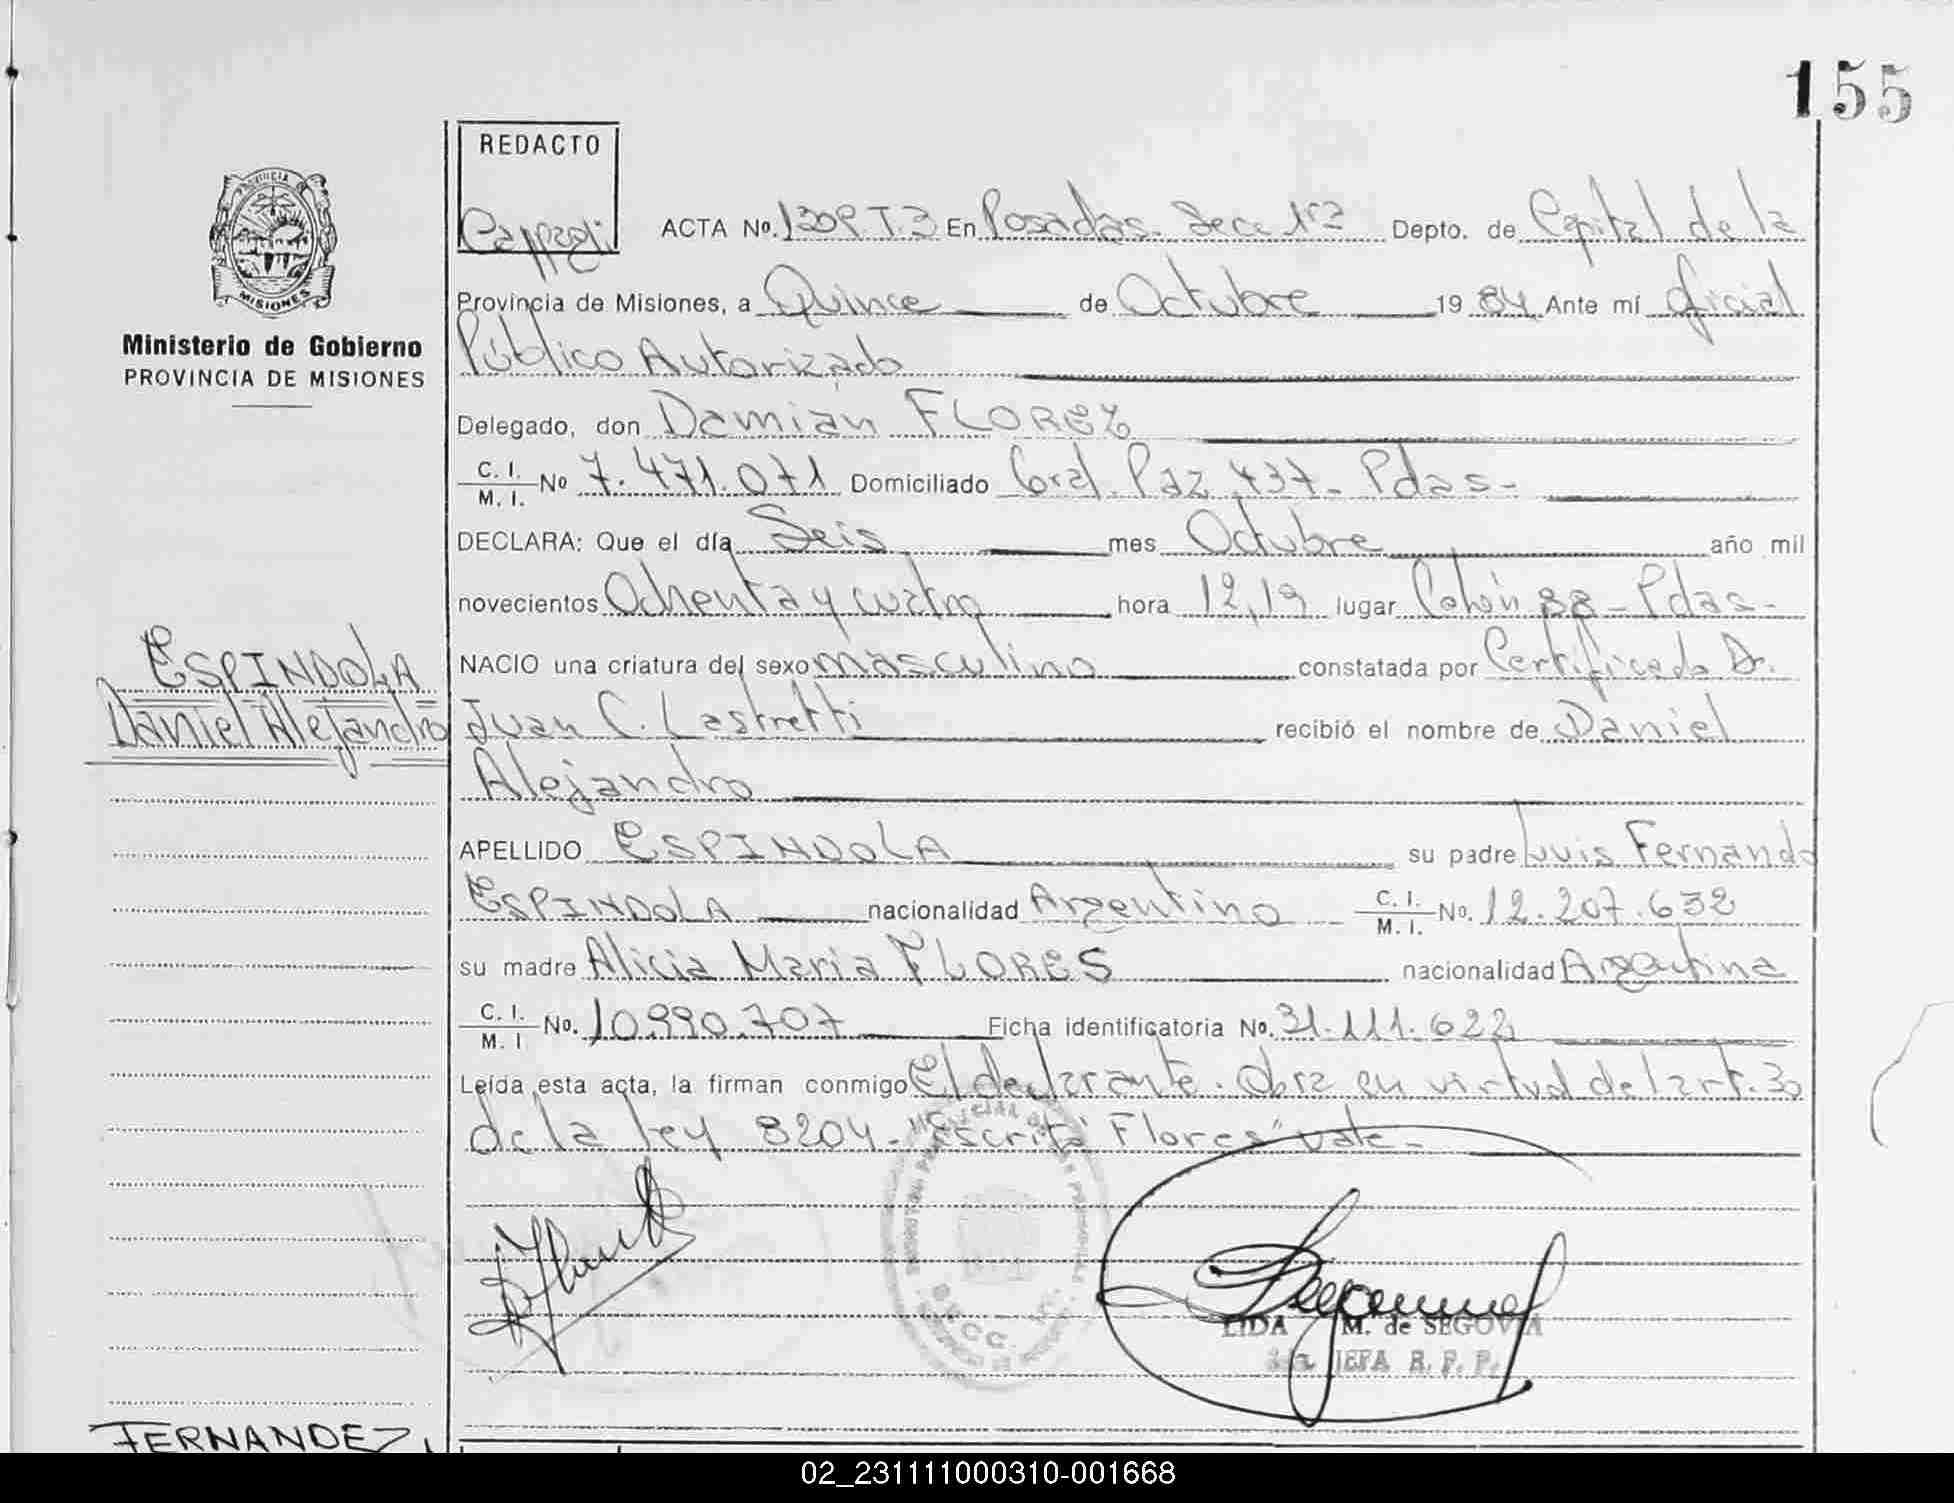 155
REDACTO
PROVINCIA
MISIONES
Ministerio de Gobierno
PROVINCIA DE MISIONES
ACTA No. 1309 T.3 En Posadas. Secc 1ra Depto. de Capital de la
Provincia de Misiones, a Quince de Octubre 1984 Ante mí Oficial
Público Autorizado
Delegado, don Damián FLOREZ
C. I. M. I. No 7.471.071 Domiciliado Gral. Paz 437 - Pdas -
DECLARA: Que el día Seis mes Octubre año mil
novecientos Ochenta y cuatro hora 12,19 lugar Colón 88 - Pdas -
NACIO una criatura del sexo masculino constatada por Certificado Dr.
Juan C. Lastretti recibió el nombre de Daniel
Alejandro
ESPINDOLA
Daniel Alejandro
APELLIDO ESPINDOLA su padre Luis Fernando
ESPINDOLA nacionalidad Argentino C. I. M. I. No. 12.207.632
su madre Alicia Maria FLORES nacionalidad Argentina
C. I. M. I No. 10.990.707 Ficha identificatoria No. 31.111.622
Leída esta acta, la firman conmigo El declarante. Obra en virtud del art. 30
de la ley 8204 - "Escrito" Flores" vale -
LIDA M. de SEGOVIA
JEFA R. P. P.
FERNANDEZ,
02_231111000310-001668